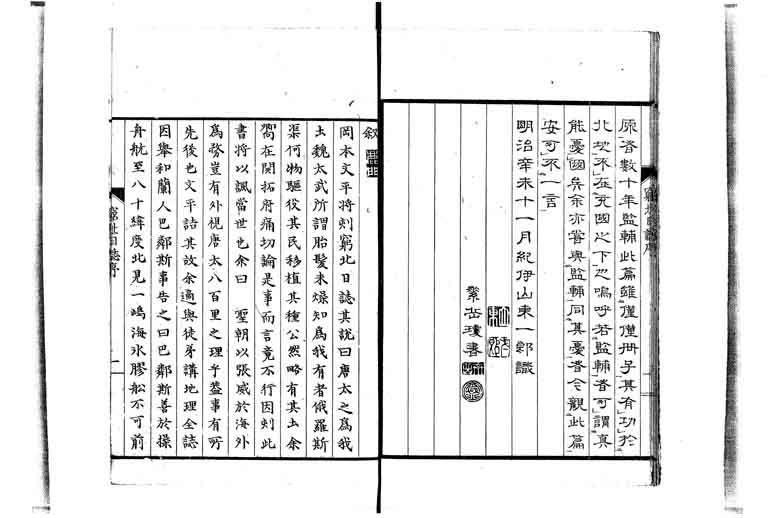 原吝數十年監輔此篇雖僅僅冊子其有功於
北地不在充國之下也嗚呼若監輔者可謂真
能憂國矣余亦嘗與監輔同其憂者今觀此篇
安可不一言
明治辛未十一月紀伊山東一郎識
叙
岡本文平將刻窮北日誌其說曰唐太之為我
土魏太武所謂胎髮未燥知為我有者俄羅斯
渠何物驅役其民移植其種公然略有其土余
嚮在開拓府痛切論是事而言竟不行因刻此
書將以諷當世也余曰聖朝以張威於海外
為務豈有外視唐太八百里之理乎蓋事有所
先後也文平詰其故余適與徒弟講地理全誌
因舉和蘭人巴鄰斯事告之曰巴鄰斯善於操
舟航至八十緯度北見一嶋海氷膠船不可前
窮北日誌序
一